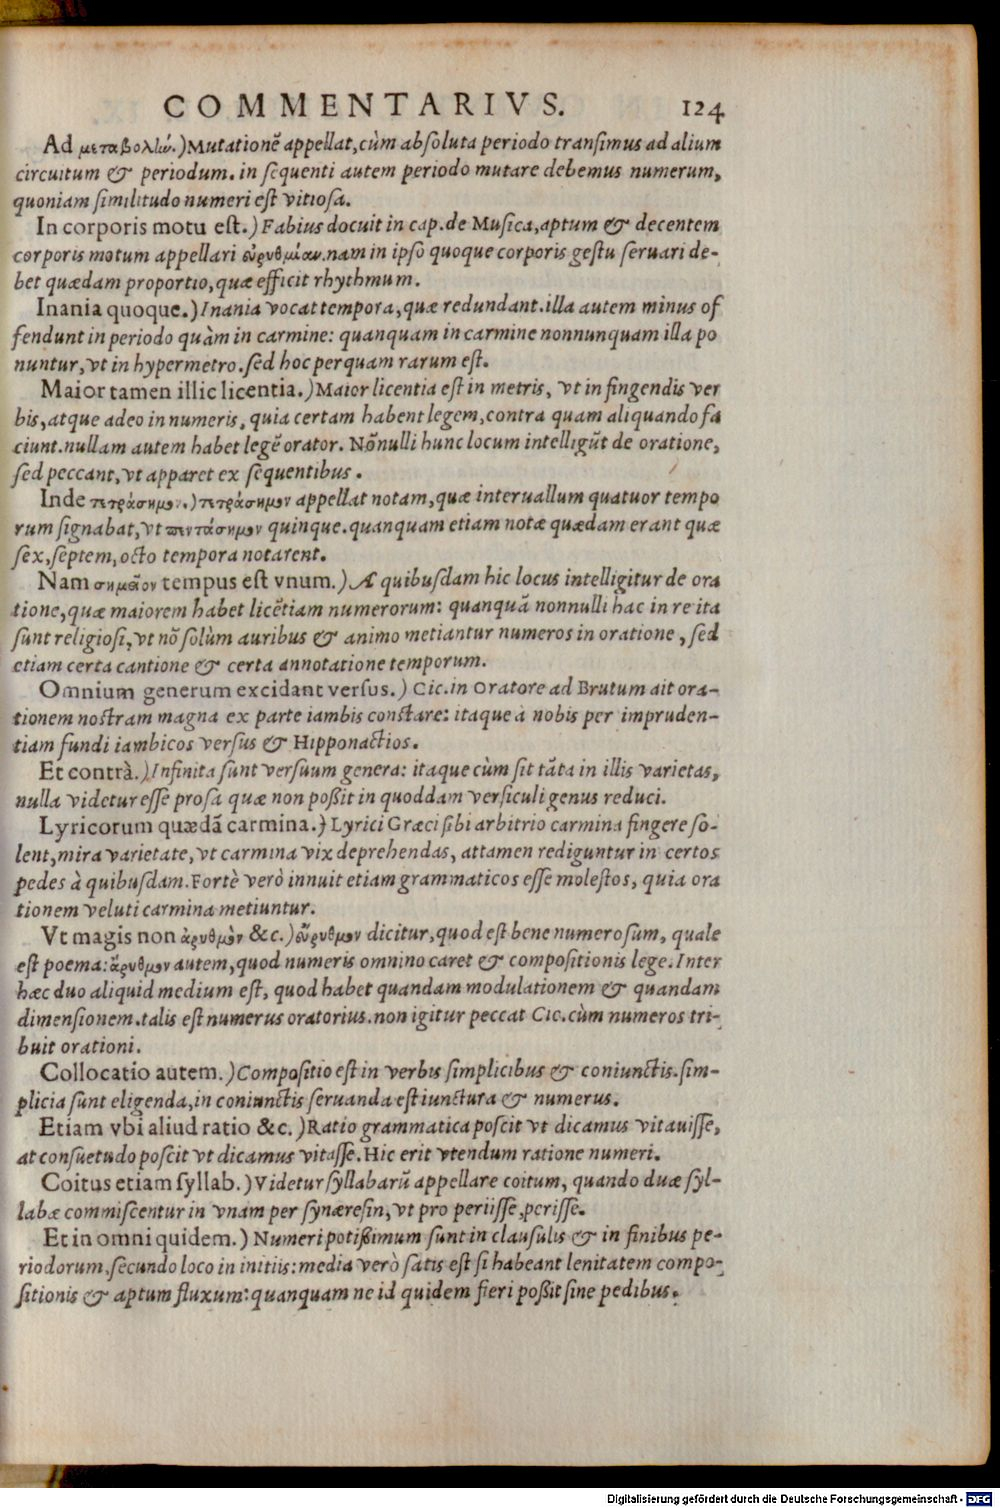 COMMENTARIVS. 124
Ad μεταβολλὼ.) Mutationẽ appellat, cùm absoluta periodo transimus ad alium
circuitum & periodum. in sequenti autem periodo mutare debemus numerum,
quoniam similitudo numeri est vitiosa.
In corporis motu est.) Fabius docuit in cap. de Musica, aptum & decentem
corporis motum appellari εὐρυθμίαν. nam in ipso quoque corporis gestu seruari de-
bet quædam proportio, quæ efficit rhythmum.
Inania quoque.) Inania vocat tempora, quæ redundant. illa autem minus of
fendunt in periodo quàm in carmine: quanquam in carmine nonnunquam illa po
nuntur, vt in hypermetro. sed hoc perquam rarum est.
Maior tamen illic licentia.) Maior licentia est in metris, vt in fingendis ver
bis, atque adeo in numeris, quia certam habent legem, contra quam aliquando fa
ciunt. nullam autem habet legẽ orator. Nõnulli hunc locum intelligũt de oratione,
sed peccant, vt apparet ex sequentibus.
Inde τετράσημον.) τετράσημον appellat notam, quæ interuallum quatuor tempo
rum signabat, vt πεντάσημον quinque. quanquam etiam notæ quædam erant quæ
sex, septem, octo tempora notarent.
Nam σημεῖον tempus est vnum.) A quibusdam hic locus intelligitur de ora
tione, quæ maiorem habet licẽtiam numerorum: quanquã nonnulli hac in re ita
sunt religiosi, vt nõ solùm auribus & animo metiantur numeros in oratione, sed
etiam certa cantione & certa annotatione temporum.
Omnium generum excidant versus.) Cic. in Oratore ad Brutum ait ora-
tionem nostram magna ex parte iambis constare: itaque à nobis per impruden-
tiam fundi iambicos versus & Hipponactios.
Et contrà.) Infinita sunt versuum genera: itaque cùm sit tãta in illis varietas,
nulla videtur esse prosa quæ non poßit in quoddam versiculi genus reduci.
Lyricorum quædã carmina.) Lyrici Græci sibi arbitrio carmina fingere so-
lent, mira varietate, vt carmina vix deprehendas, attamen rediguntur in certos
pedes à quibusdam. Fortè verò innuit etiam grammaticos esse molestos, quia ora
tionem veluti carmina metiuntur.
Vt magis non ἄρυθμον &c.) εὔρυθμον dicitur, quod est bene numerosum, quale
est poema: ἄρυθμον autem, quod numeris omnino caret & compositionis lege. Inter
hæc duo aliquid medium est, quod habet quandam modulationem & quandam
dimensionem. talis est numerus oratorius. non igitur peccat Cic. cùm numeros tri-
buit orationi.
Collocatio autem.) Compositio est in verbis simplicibus & coniunctis. sim-
plicia sunt eligenda, in coniunctis seruanda est iunctura & numerus.
Etiam vbi aliud ratio &c.) Ratio grammatica poscit vt dicamus vitauisse,
at consuetudo poscit vt dicamus vitasse. Hic erit vtendum ratione numeri.
Coitus etiam syllab.) Videtur syllabarũ appellare coitum, quando duæ syl-
labæ commiscentur in vnam per synæresin, vt pro periisse, perisse.
Et in omni quidem.) Numeri potißimum sunt in clausulis & in finibus pe-
riodorum, secundo loco in initiis: media verò satis est si habeant lenitatem compo-
sitionis & aptum fluxum: quanquam ne id quidem fieri poßit sine pedibus.
Digitalisierung gefördert durch die Deutsche Forschungsgemeinschaft - DFG